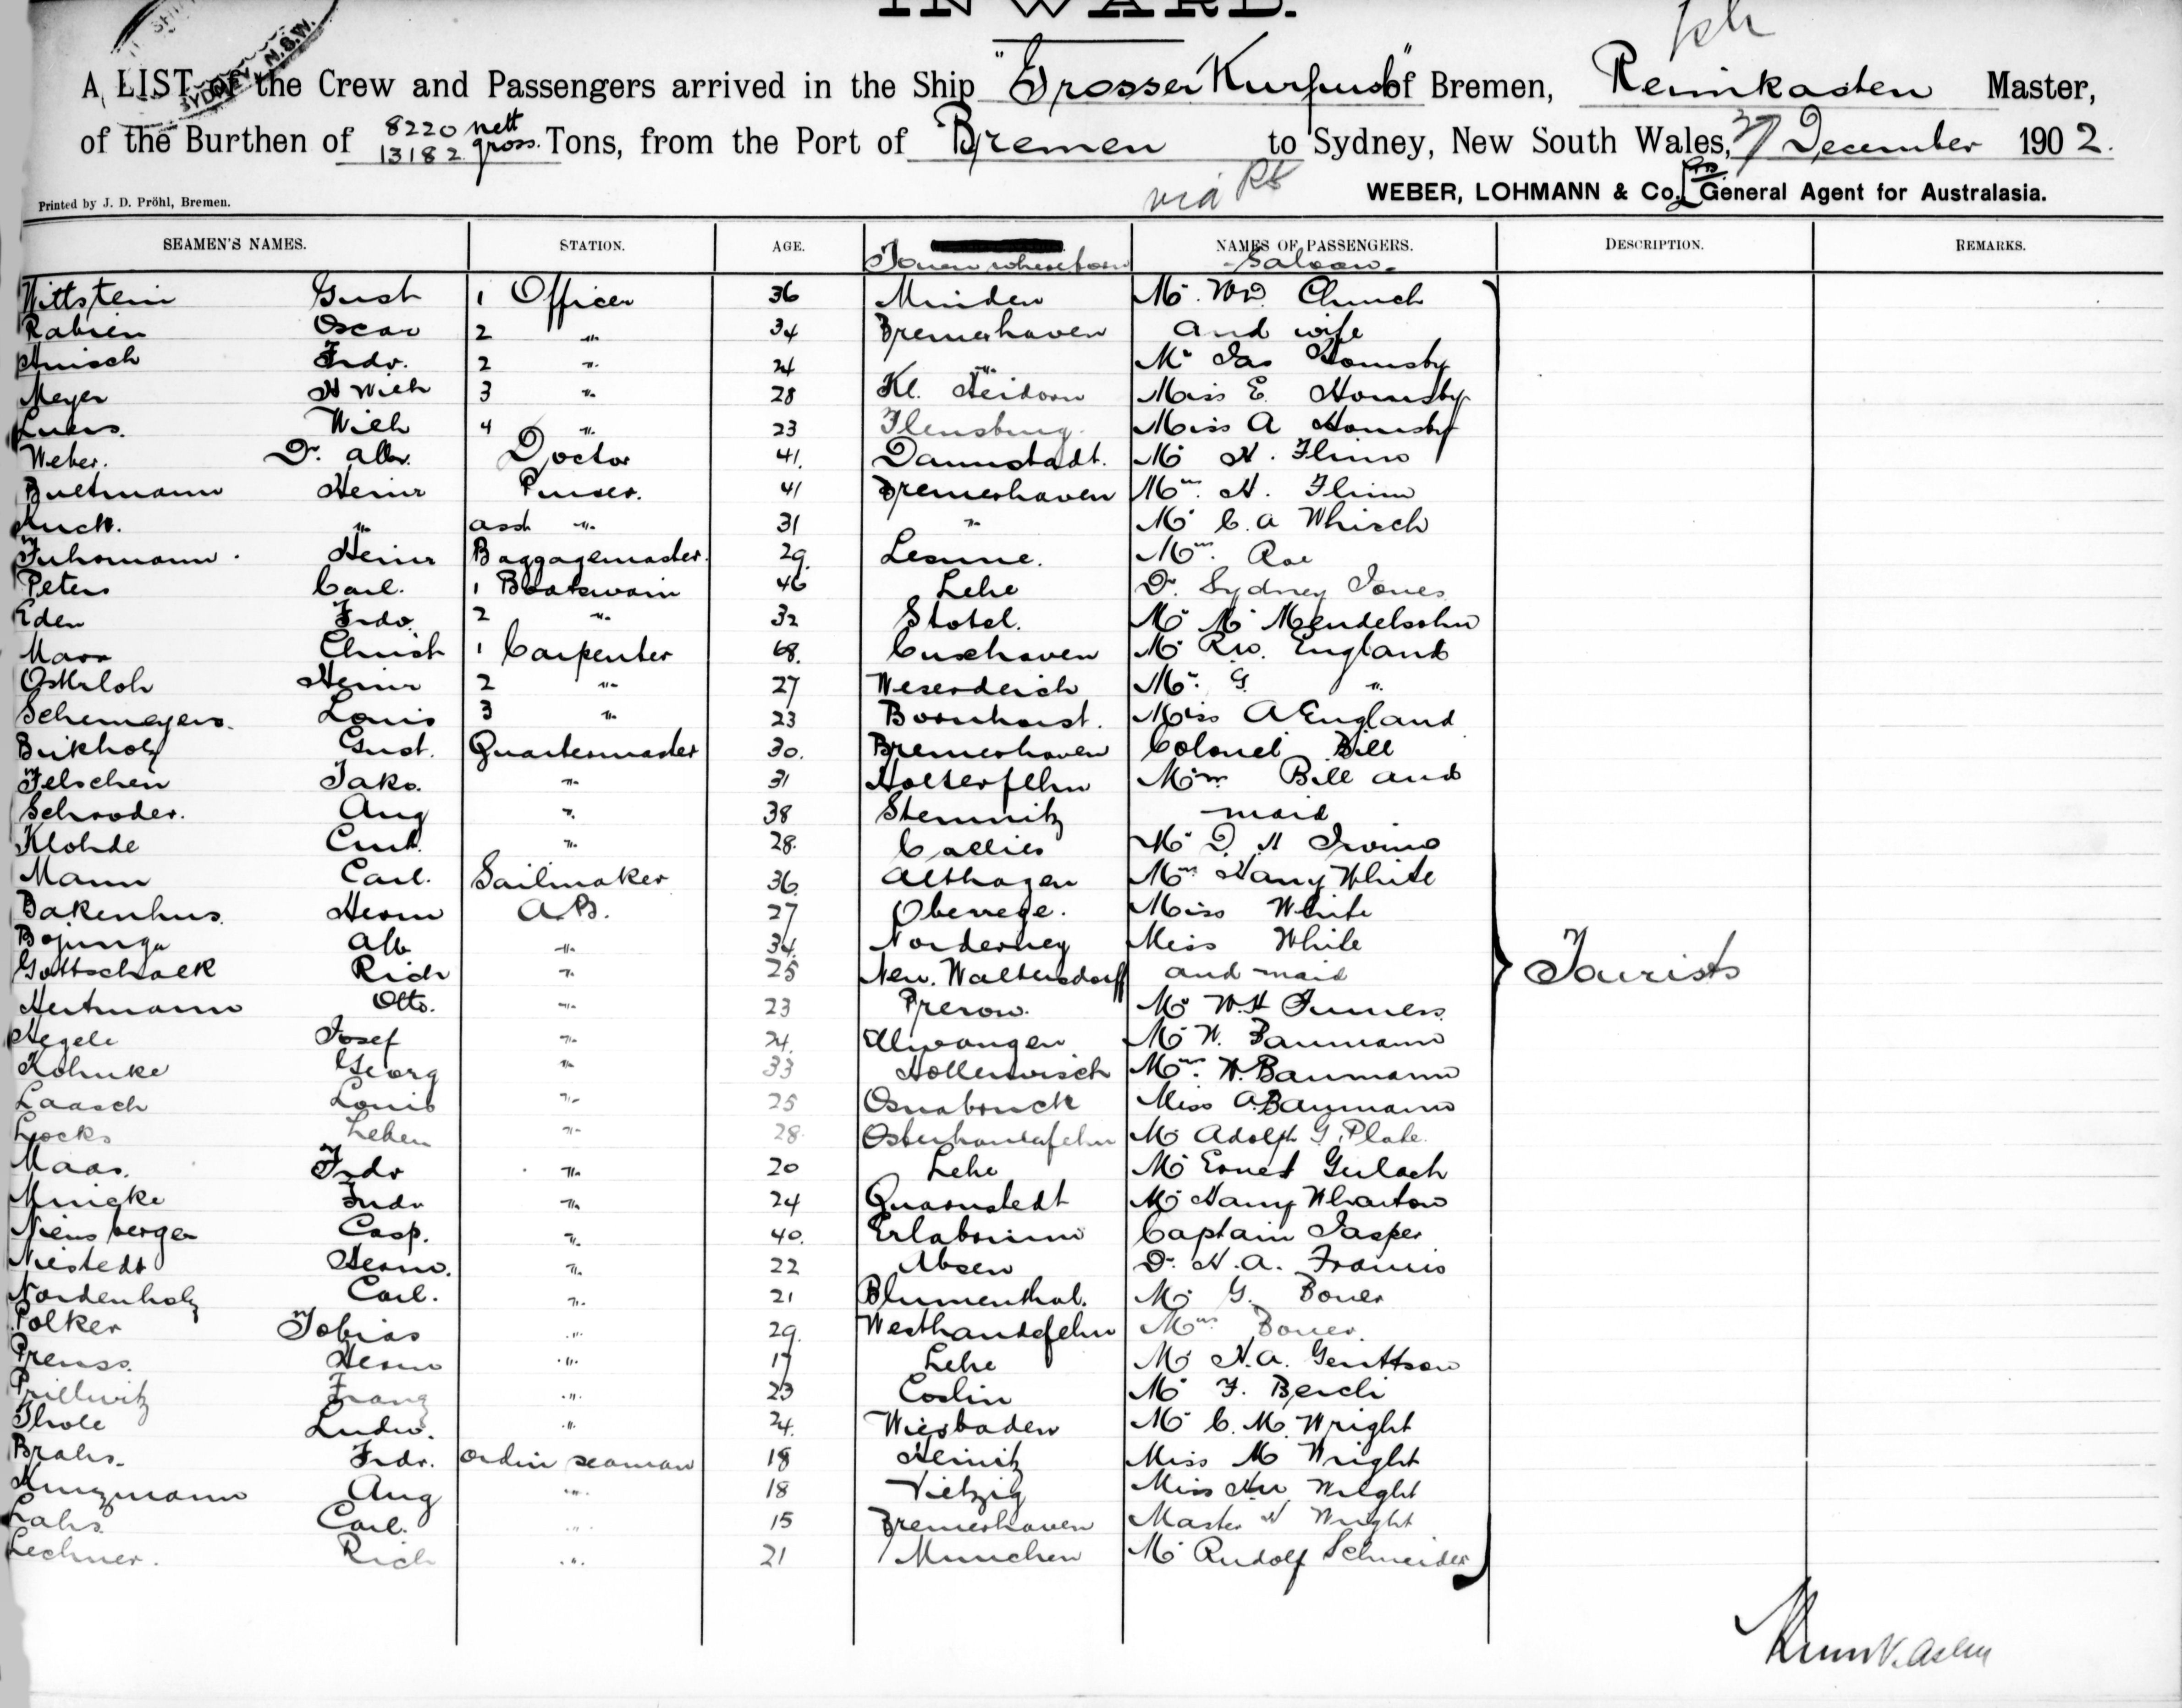 INWARD.
A LIST of the Crew and Passengers arrived in the Ship "Grosser Kurfurst" of Bremen, Reimkasten Master,
of the Burthen of 8220 nett 13182 gross. Tons, from the Port of Bremen to Sydney, New South Wales, 27 December 1902.
via
WEBER, LOHMANN & Co. Ltd. General Agent for Australasia.
Printed by J. D. Pröhl, Bremen.
SEAMEN'S NAMES. STATION. AGE. Town where born NAMES OF PASSENGERS. DESCRIPTION. REMARKS.
-Saloon.-
Wittstein Gust 1 Officer 36 Minden Mr. Wm. Church
Rabien Oscar 2 " 34 Bremerhaven and wife
Harnisch Frdr. 2 " 24 " Mr Jas Hornsby
Meyer H Wilh 3 " 28 Kl. Heidorn Miss E. Hornsby
Luers. Wilh 4 " 23 Flensburg. Miss A Hornsby
Weber. Dr. Albr. Doctor 41. Darmstadt. Mr H. Flinn
Bultmann Heinr Purser. 41 Bremerhaven Mrs. H. Flinn
" asst " 31 " Mr C. A Whisch
Fuhrmann. Heinr Baggagemaster. 29. Lesum. Mrs. Roe
Peters Carl. 1 Boatswain 46 Lehe Dr. Sydney Jones
Eden Frdr. 2 " 32 Stotel. Mr M. Mendelsohn
Marx Christ 1 Carpenter 68. Cuxhaven Mr Rw. England
Osterloh Heinr 2 " 27 Weserdeich Mrs. G. "
Schemeyers. Louis 3 " 23 Bornhorst. Miss A England
Birkholz Gust. Quartermaster 30. Bremerhaven Colonel Bill
Felschen Jako. " 31 Holterfehn Mrs Bill and
Schroder. Aug " 38 Stemnitz maid
Klohde Curt. " 28. Callies Mr D. H Irvine
Mann Carl. Sailmaker 36. Althagen Mrs Harry White
Bakenhus. Herm A.B. 27 Oberrege. Miss White
Bojunga Alb " 34. Norderney Miss White
Gottschalk Rich " 25 Neu. Waltersdorff and maid Tourists
Hertmann Otto. " 23 Prerow. Mr W.H Furness
Hegele Josef " 24. Ellwangen Mr W. Baumann
Kohnke Georg " 33 Hollerwisch Mrs. W. Baumann
Laasch Louis " 25 Osnabruck Miss A. Baumann
Locks " 28. Osterhandefehn Mr Adolph G. Plate.
Maas. Frdr " 20 Lehe Mr Ernest Gerlach
Minicke Frdr " 24 Quarnstedt Mr Harry Wharton
Niensberger Casp. " 40. Erlabrunn Captain Jasper
Niestedt Herm. " 22 Absen Dr. H. A. Francis
Nordenholz Carl. " 21 Blumenthal. Mr G. Boner
Polker Tobias " 29. Westhandefehn Mrs Boner.
Preuss. Herm " 17 Lehe Mr N. A. Gerittson
Prillwitz Franz " 23 Coslin Mr F. Bercli
Thole Ludw. " 24. Wiesbaden Mr C. M. Wright
Brahs. Frdr. ordin seaman 18 Heinitz Miss M Wright
Kunzmann Aug " 18 Vietzig Miss Wright
Lahs. Carl. " 15 Bremerhaven Master H Wright
Lechner. Rich " 21 Munchen Mr Rudolf Schneider